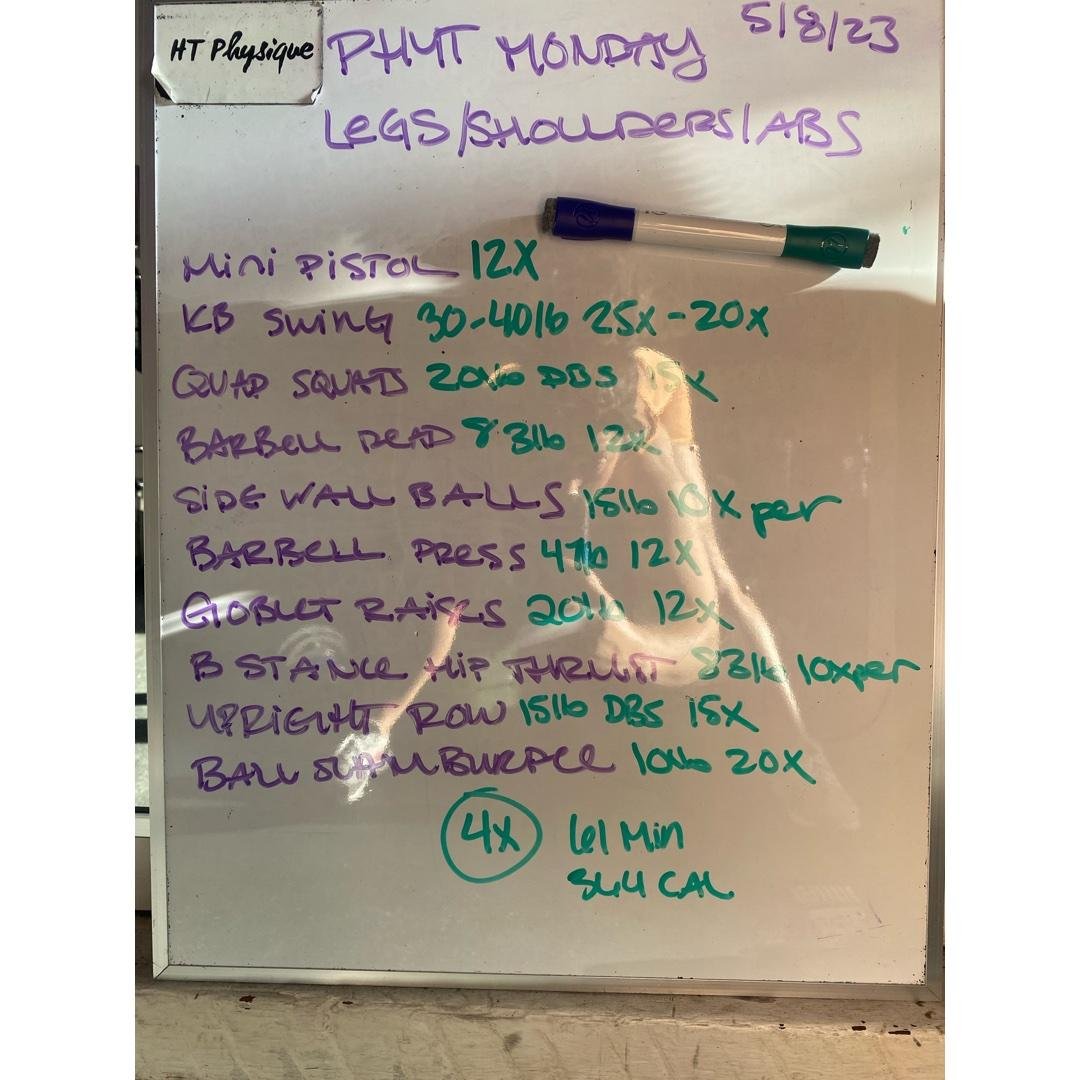 HT Physique
PHYT MONDAY 5/8/23
LEGS/SHOULDERS/ABS
MINI PISTOL 12X
KB SWING 30-40lb 25x-20x
QUAD SQUATS 20lb DBS 15x
BARBELL DEAD 83lb 12x
SIDE WALL BALLS 15lb 10X per
BARBELL PRESS 47lb 12X
GOBLET RAISES 20lb 12x
B STANCE HIP THRUST 83lb 10xper
UPRIGHT ROW 15lb DBS 15X
BALL SLAM BURPEE 10lb 20X
4x 61 Min
CAL